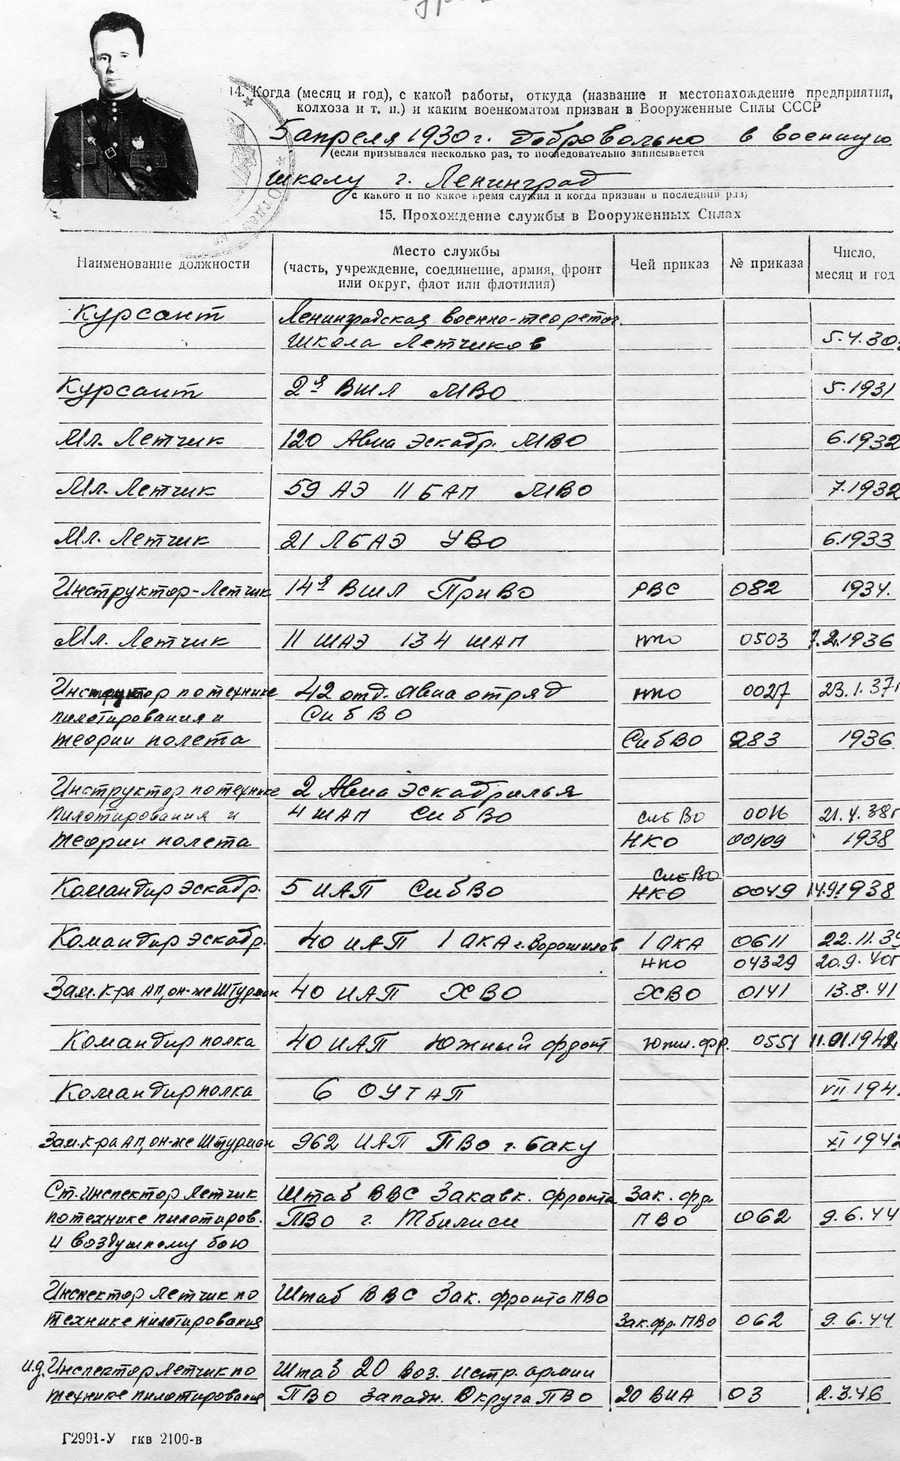 14. Когда (месяц и год), с какой работы, откуда (название и местонахождение предприятия,
колхоза и т. п.) и каким военкоматом призван в Вооруженные Силы СССР
5 апреля 1930 г. добровольно в военную
(если призывался несколько раз, то последовательно записывается
школу г. Ленинград
с какого и по какое время служил и когда призван в последний раз)
15. Прохождение службы в Вооруженных Силах
Наименование должности Место службы (часть, учреждение, соединение, армия, фронт или округ, флот или флотилия) Чей приказ № приказа Число, месяц и год
Курсант Ленинградская военно-теоретич.
школа Летчиков 5.4.30
Курсант 2я ВШЛ МВО 5.1931
Мл. Летчик 120 Авиа Эскадр. МВО 6.1932
Мл. Летчик 59 АЭ 11 БАП МВО 7.1932
Мл. Летчик 21 ЛБАЭ УВО 6.1933
Инструктор-Летчик 14я ВШЛ ПриВО РВС 082 1934.
Мл. Летчик 11 ШАЭ 134 ШАП НКО 0503 7.2.1936
Инструктор по технике 42 отд. авиаотряд НКО 0027 23.1.37г
пилотирования и СибВО
теории полета СибВО 283 1936
Инструктор по технике 2 Авиа Эскадрилья
пилотирования и 4 ШАП СибВО СибВО 0016 21.4.38г
теории полета НКО 00109 1938
СибВО
Командир Эскадр. 5 ИАП СибВО НКО 0049 14.9.1938
Командир Эскадр. 40 ИАП 1 ОКА г. Ворошилов 1 ОКА 0611 22.11.39
НКО 04329 20.9.40г
Зам. К-ра АП, он-же Штурман 40 ИАП ХВО ХВО 0141 13.8.41
Командир полка 40 ИАП Южный фронт Южн. фр. 0551 11.01.1942
Командир полка 6 ОУТАП VII 194
Зам. К-ра АП, он-же Штурман 962 ИАП ПВО г. Баку XI 1942
Ст. Инспектор Летчик Штаб ВВС Закавк. фронта Зак. фр.
по технике пилотиров. ПВО г. Тбилиси ПВО 062 9.6.44
и воздушному бою
Инспектор Летчик по Штаб ВВС Зак. фронта ПВО
технике пилотирования Зак. фр. ПВО 062 9.6.44
и.д. Инспектор Летчик по Штаб 20 воз. истр. армии
технике пилотирования ПВО Западн. Округа ПВО 20 ВИА 03 2.3.46
Г2991-У гкв 2100-в